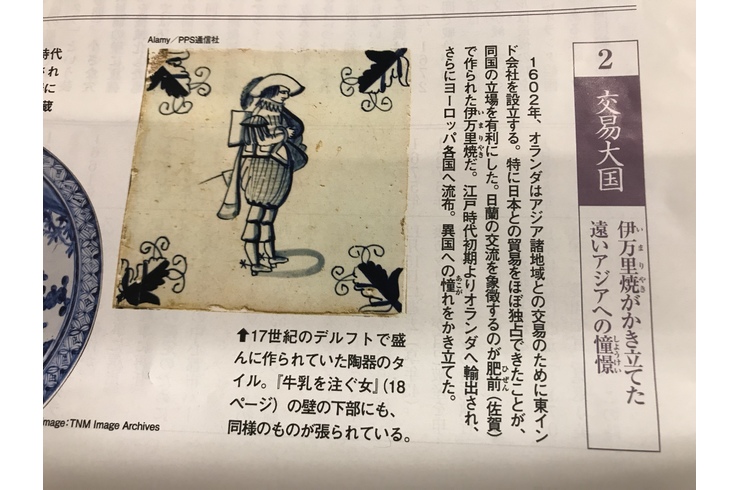 2
交易大国
伊万里焼がかき立てた
いまりやき
遠いアジアへの憧憬
しょうけい
1602年、オランダはアジア諸地域との交易のために東イン
ド会社を設立する。特に日本との貿易をほぼ独占できたことが、
同国の立場を有利にした。日蘭の交流を象徴するのが肥前（佐賀）
ひぜん
で作られた伊万里焼だ。江戸時代初期よりオランダへ輸出され、
いまりやき
さらにヨーロッパ各国へ流布。異国への憧れをかき立てた。
あこが
Alamy／PPS通信社
⬆17世紀のデルフトで盛
んに作られていた陶器のタ
イル。『牛乳を注ぐ女』（18
ページ）の壁の下部にも、
同様のものが張られている。
時代
され
に
蔵
mage：TNM Image Archives